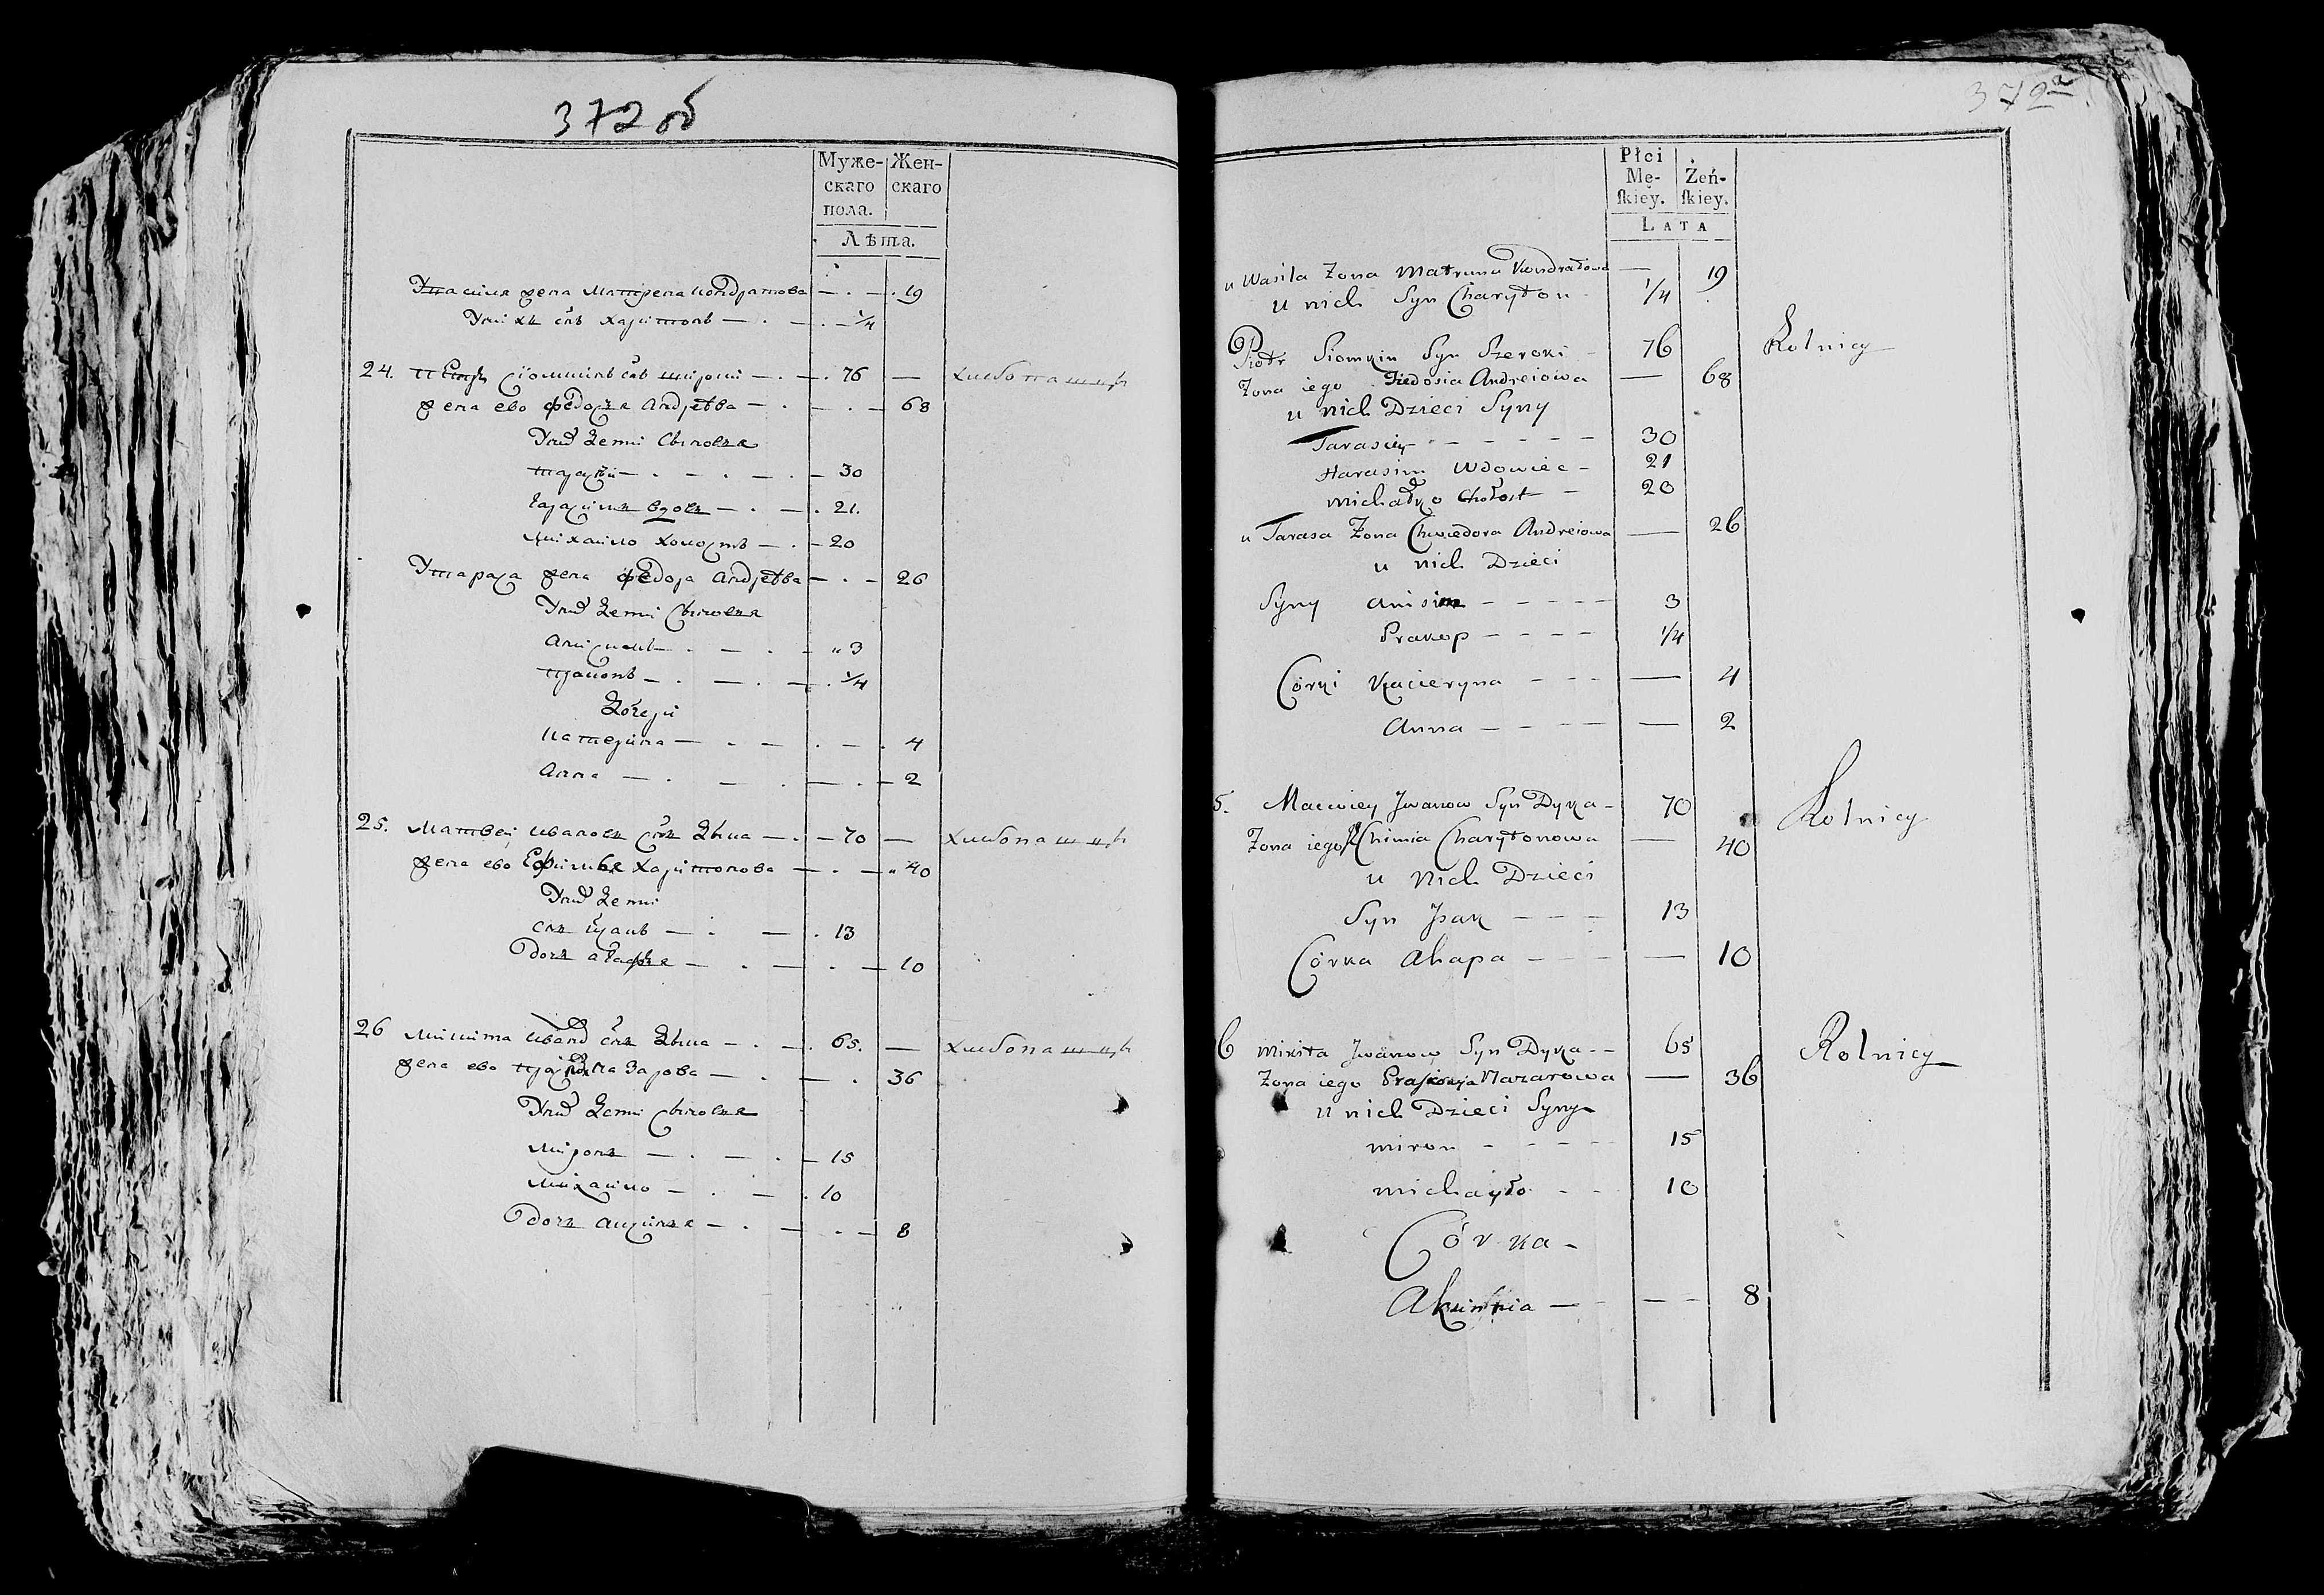 372 об
Муже-
скаго
пола.
Жен-
скаго
Лѣта.
У василя жена матрена кондратова — . — . 19
У ни хъ снъ харитонъ — . — . — 1/4
24. петръ сїомкинъ снъ широки — . — . 76 — хлебопашцы
жена ево федосья андреева — . — . — 68
У них дети сыновья
тарасей — . — . — . — 30
гарасимъ вдовъ — . — . 21.
михайло холостъ — . — 20
У тараса жена федора андреева — . — 26
У них дети сыновья
анисимъ . — . — " 3
прокопъ — . — . — . 1/4
дочери
катерина — . — . — . 4
анна — . — . — . — 2
25. матвей ивановъ снъ дыка — . — 70 — хлебопашцы
жена ево Ефимья харитонова — . — " 40
У них дети
снъ исакъ — . — . 13
дочь агафья — . — . — 10
26 микита иванов снъ дыка — . — . 65. — хлебопашцы
жена ево назарова — . — . 36
У них дети сыновья
миронъ — . — . — 15
михайло — . — . 10
дочь аксинья — . — . — 8
372а
Płci
Mę-
ſkiey.
Żeń-
ſkiey.
LATA
u Wasila Żona Matruna Kondratowa — 19
u nich Syn Charyton - 1/4
Piotr Siomkin Syn Szeroki - 76 Rolnicy
Żona iego Fiedosia Andreiowa — 68
u nich Dzieci Syny
Tarasiey - - - - - - 30
Harasim Wdowiec - 21
Michałko Chołost - 20
u Tarasa Żona Chwiedora Andreiowa — 26
u nich Dzieci
Syny Anisim - - - - - 3
Prakop - - - - 1/4
Córki Kacieryna - - - — 4
Anna - - - - — 2
5. Maciwiey Jwanow Syn Dyka - 70 Rolnicy
Żona iego Chimia Charytonowa — 40
u nich Dzieci
Syn Jsak - - - 13
Córka Ahapa - - - — 10
6 Mikita Jwanow Syn Dyka - - 65 Rolnicy
Żona iego Praskowja Nazarowa — 36
u nich Dzieci Syny
Miron - - - - - 15
Michayło - - 10
Córka -
Akuinia — - — - 8